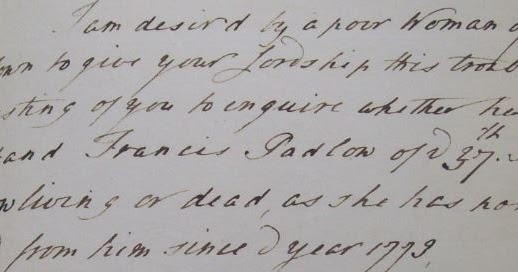 I am desir'd by a poor Woman o
own to give your Lordship this troub
sting of you to enquire whether he
and Francis Padlow of ye 37th
w living or dead, as she has no
from him since ye year 1779,